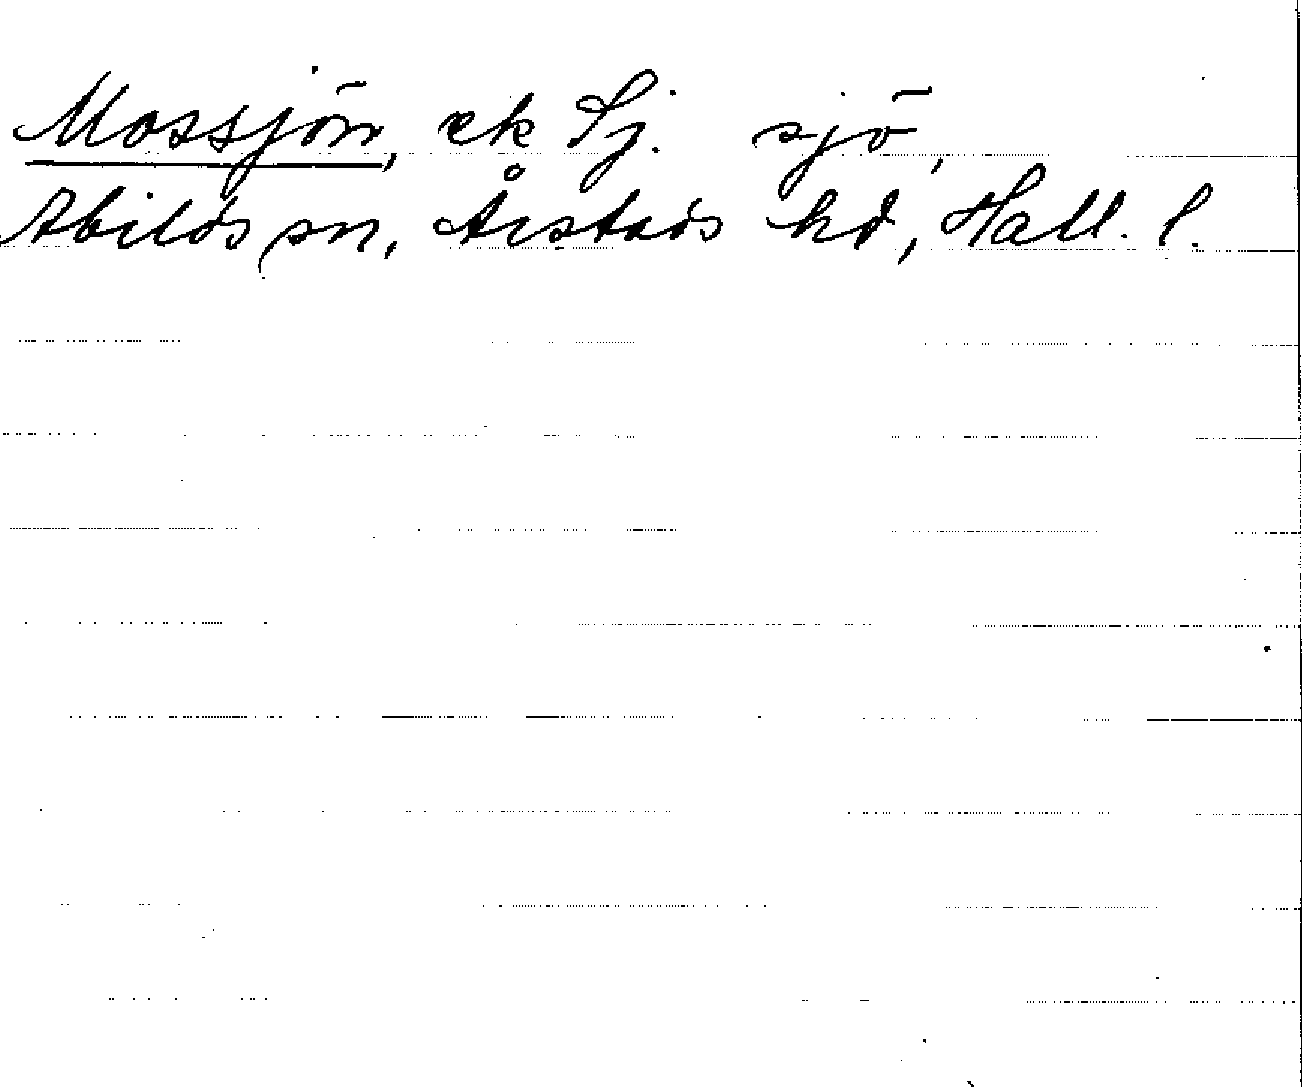 Mossjön, ek Sj. sjö,
Abilds sn, Årstads hd, Hall. l.